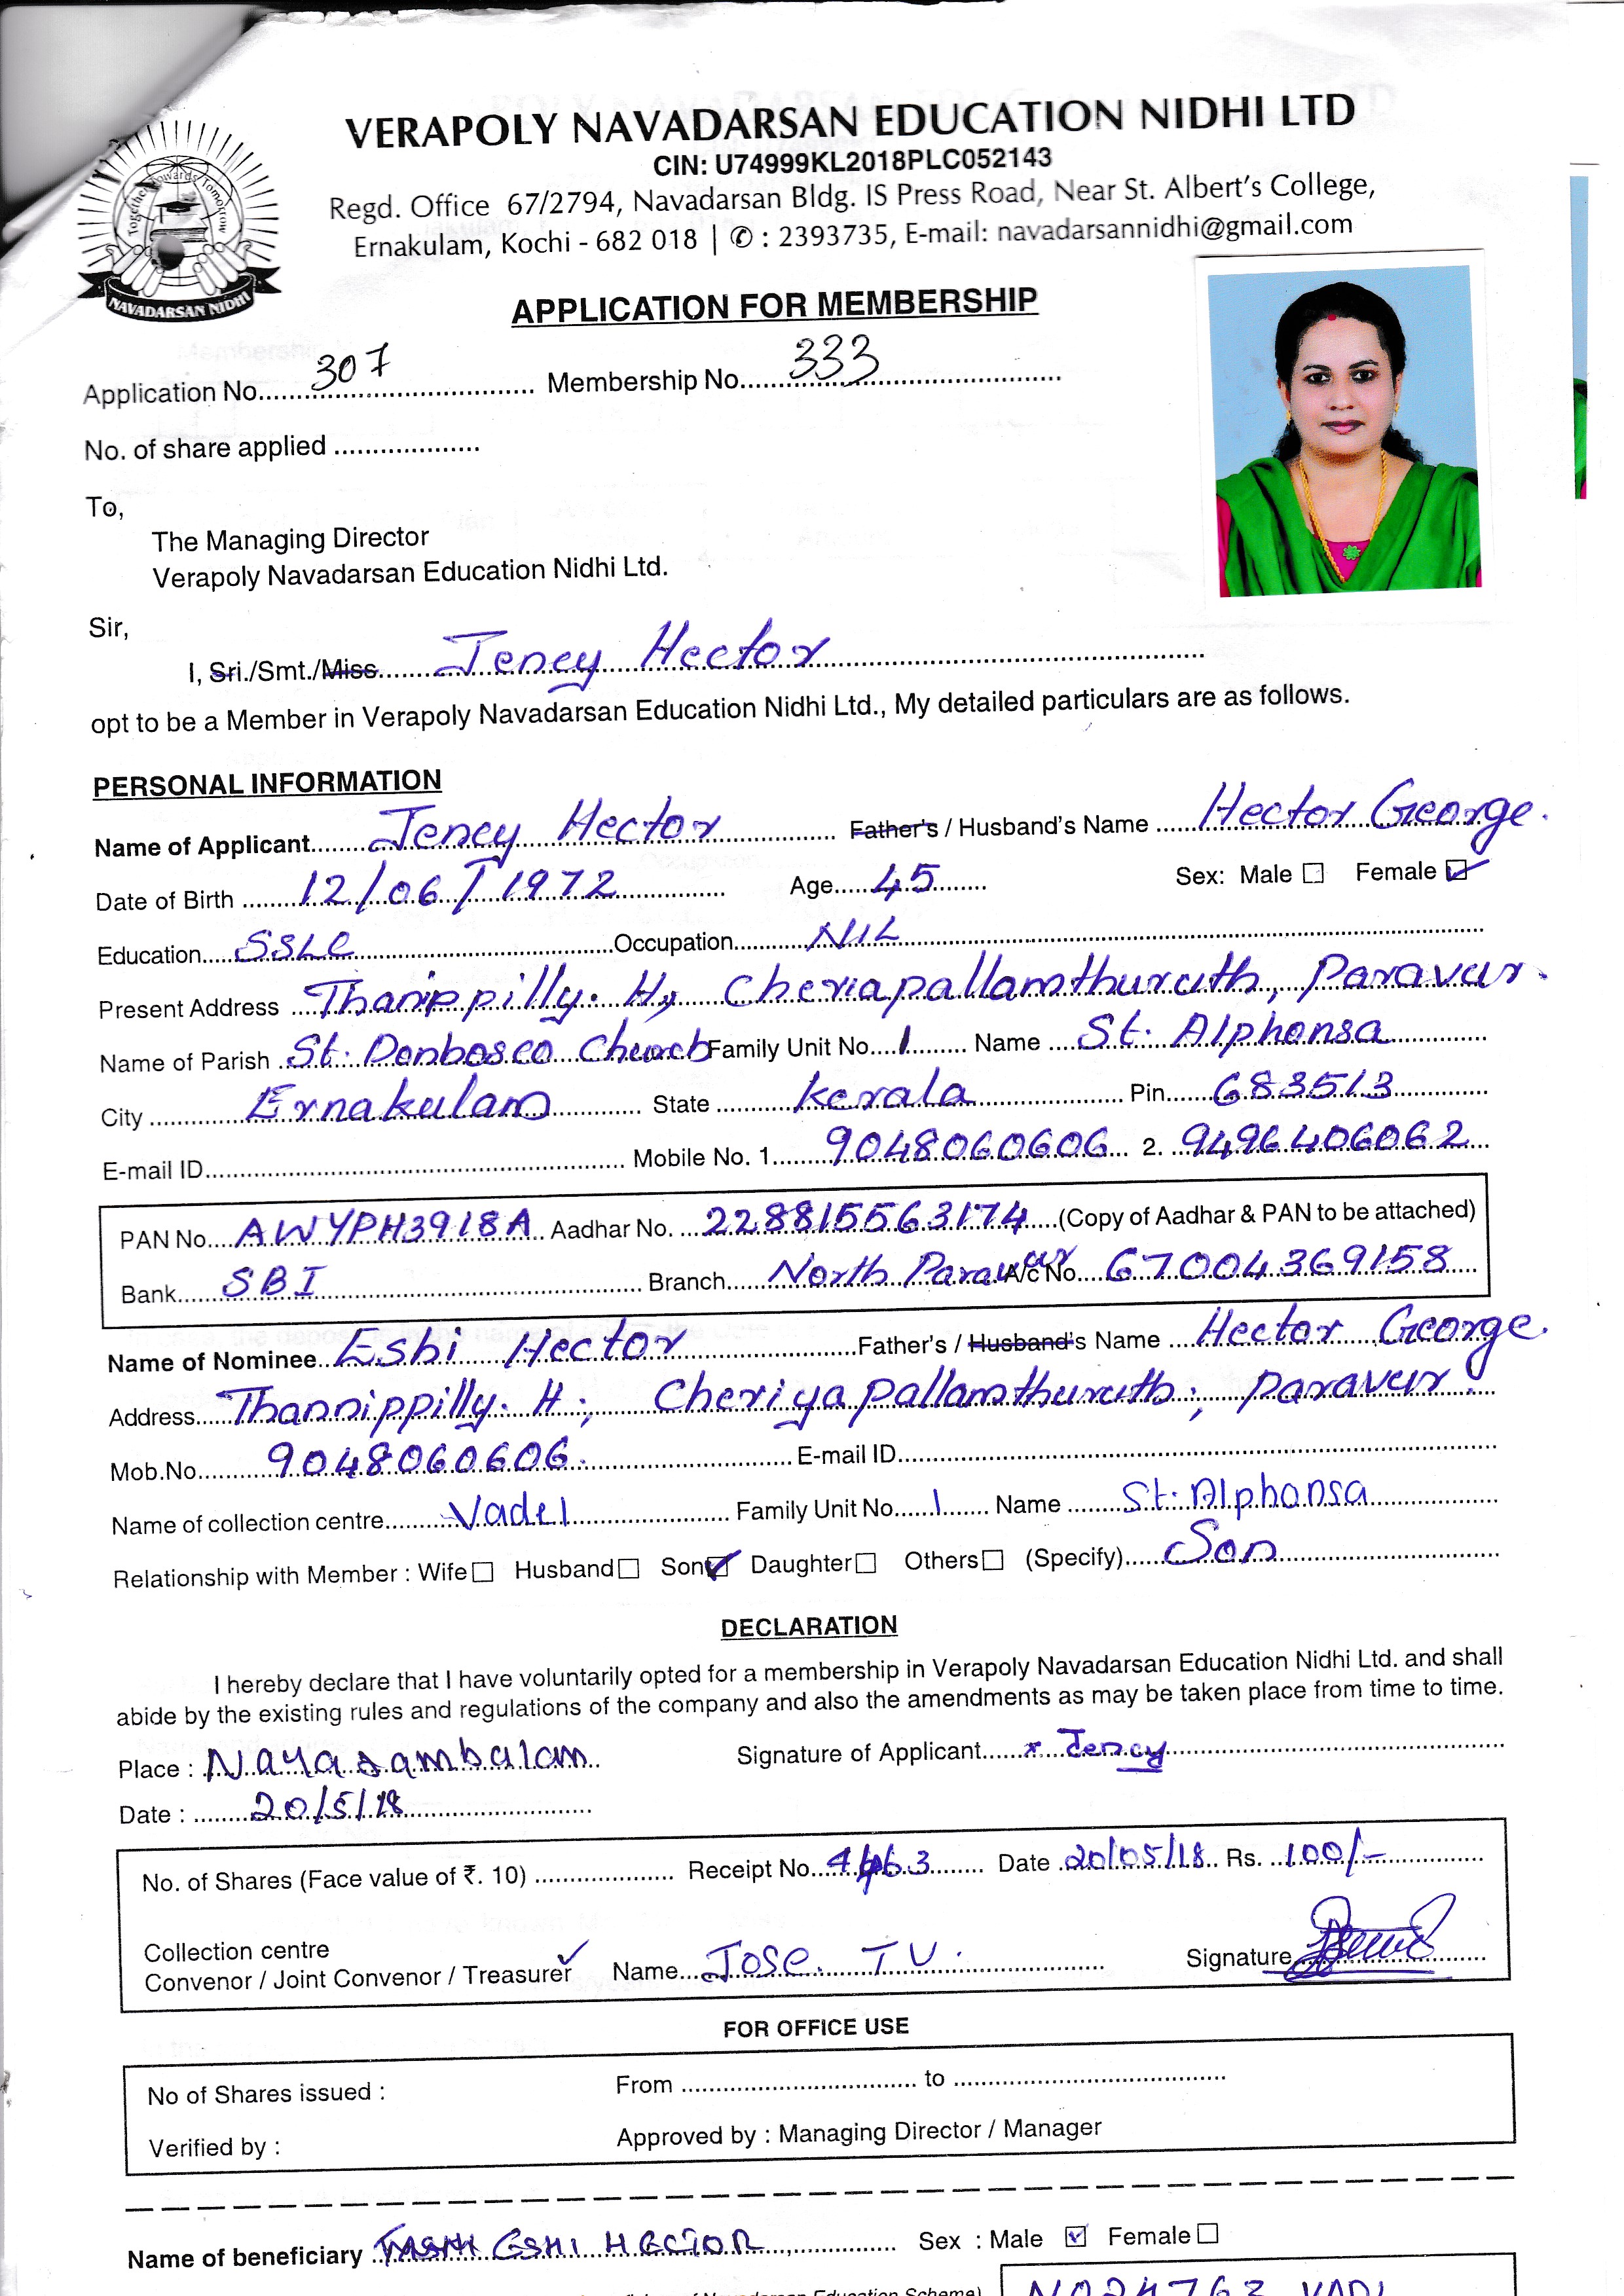 Together Towards Tomorrow
NAVADARSAN NIDHI
VERAPOLY NAVADARSAN EDUCATION NIDHI LTD
CIN: U74999KL2018PLC052143
Regd. Office 67/2794, Navadarsan Bldg. IS Press Road, Near St. Albert's College,
Ernakulam, Kochi - 682 018 | ✆ : 2393735, E-mail: navadarsannidhi@gmail.com
APPLICATION FOR MEMBERSHIP
Application No. 307 Membership No. 333
No. of share applied
To,
The Managing Director
Verapoly Navadarsan Education Nidhi Ltd.
Sir,
I, Sri./Smt./Miss. Jency Hector
opt to be a Member in Verapoly Navadarsan Education Nidhi Ltd., My detailed particulars are as follows.
PERSONAL INFORMATION
Name of Applicant Jency Hector Father's / Husband's Name Hector George.
Date of Birth 12/06/1972 Age 45 Sex: Male ☐ Female ☑
Education SSLC Occupation NIL
Present Address Thanippilly. H, Cheriapallamthuruth, Paravur.
Name of Parish St. Donbosco Church Family Unit No. 1 Name St. Alphonsa
City Ernakulam State Kerala Pin 683513
E-mail ID Mobile No. 1. 9048060606 2. 9496406062
PAN No. AWYPH3918A Aadhar No. 228815563174 (Copy of Aadhar & PAN to be attached)
Bank SBI Branch North Paravur A/c No. 67004369158
Name of Nominee Esbi Hector Father's / Husband's Name Hector George.
Address Thannippilly. H; Cheriyapallamthuruth; Paravur.
Mob.No. 9048060606. E-mail ID
Name of collection centre Vadel Family Unit No. 1 Name St. Alphonsa
Relationship with Member : Wife ☐ Husband ☐ Son ☑ Daughter ☐ Others ☐ (Specify) Son
DECLARATION
I hereby declare that I have voluntarily opted for a membership in Verapoly Navadarsan Education Nidhi Ltd. and shall
abide by the existing rules and regulations of the company and also the amendments as may be taken place from time to time.
Place : Nayarambalam Signature of Applicant x Jency
Date : 20/5/18
No. of Shares (Face value of ₹. 10) Receipt No. Date 20/05/18 Rs. 100/-
Collection centre
Convenor / Joint Convenor / Treasurer ✓ Name Jose. T V. Signature
FOR OFFICE USE
No of Shares issued : From to
Verified by : Approved by : Managing Director / Manager
Name of beneficiary HECTOR Sex : Male ☑ Female ☐
Navadarsan Education Scheme)